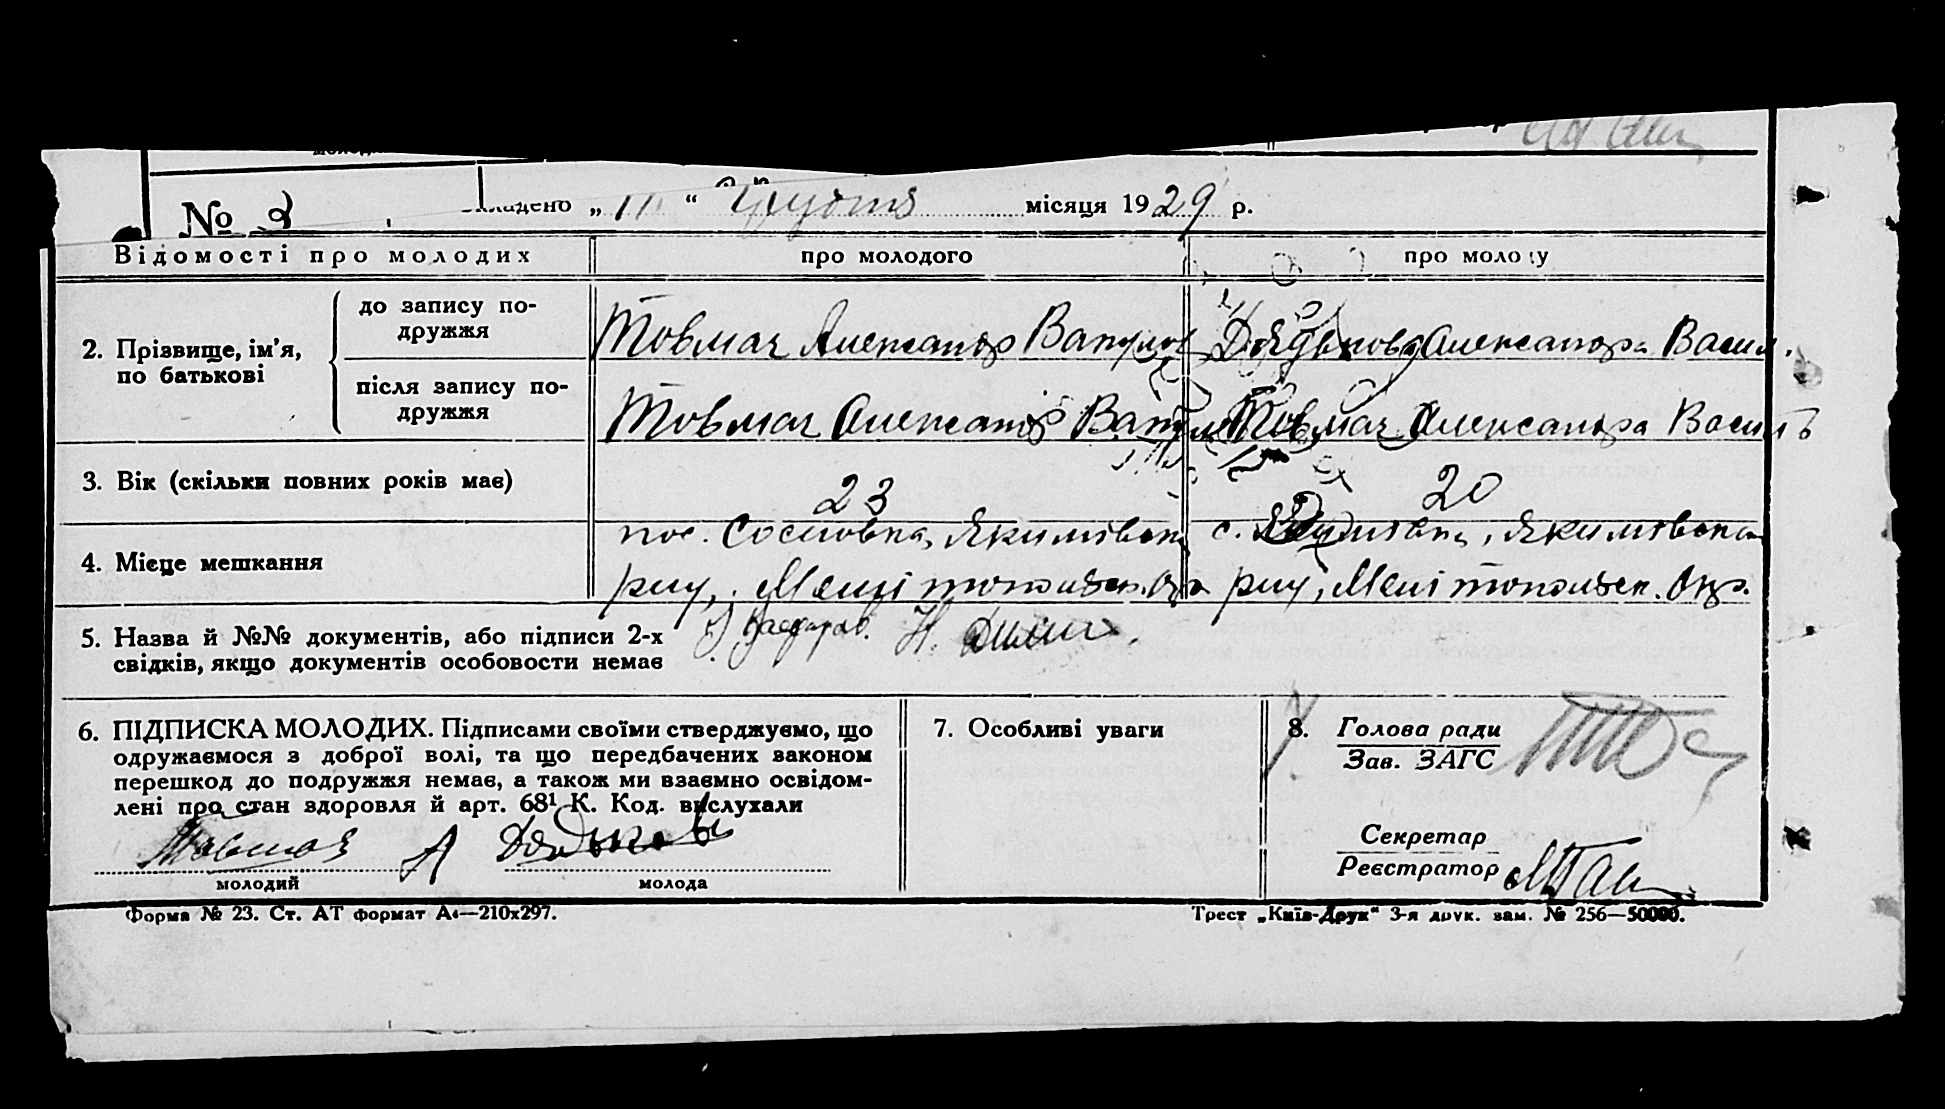 № 2 складено „ “ Грудня місяця 1929 р.
Відомості про молодих про молодого про молоду
2. Прізвище, ім’я, по батькові
до запису по-
дружжя
Товмач Александр Вакулов Дядькова Александра Васил.
після запису по-
дружжя
Товмач Александр Товмач Александра Васил
3. Вік (скільки повних років має) 23 20
4. Місце мешкання
пос. Сосновка, Якимівськ с. Якимівська
рну, Мелітопольськ. Окр рну, Мелітопольськ. Окр.
5. Назва й №№ документів, або підписи 2-х
свідків, якщо документів особовости немає
6. ПІДПИСКА МОЛОДИХ. Підписами своїми стверджуємо, що
одружаємося з доброї волі, та що передбачених законом
перешкод до подружжя немає, а також ми взаємно освідом-
лені про стан здоровля й арт. 68¹ К. Код. вислухали
Товмач А Дядькова
молодий молода
7. Особливі уваги
8. Голова ради
Зав. ЗАГС
Секретар
Реєстратор
Форма № 23. Ст. АТ формат А4—210х297.
Трест „Київ-Друк“ 3-я друк. зам. № 256—50000.